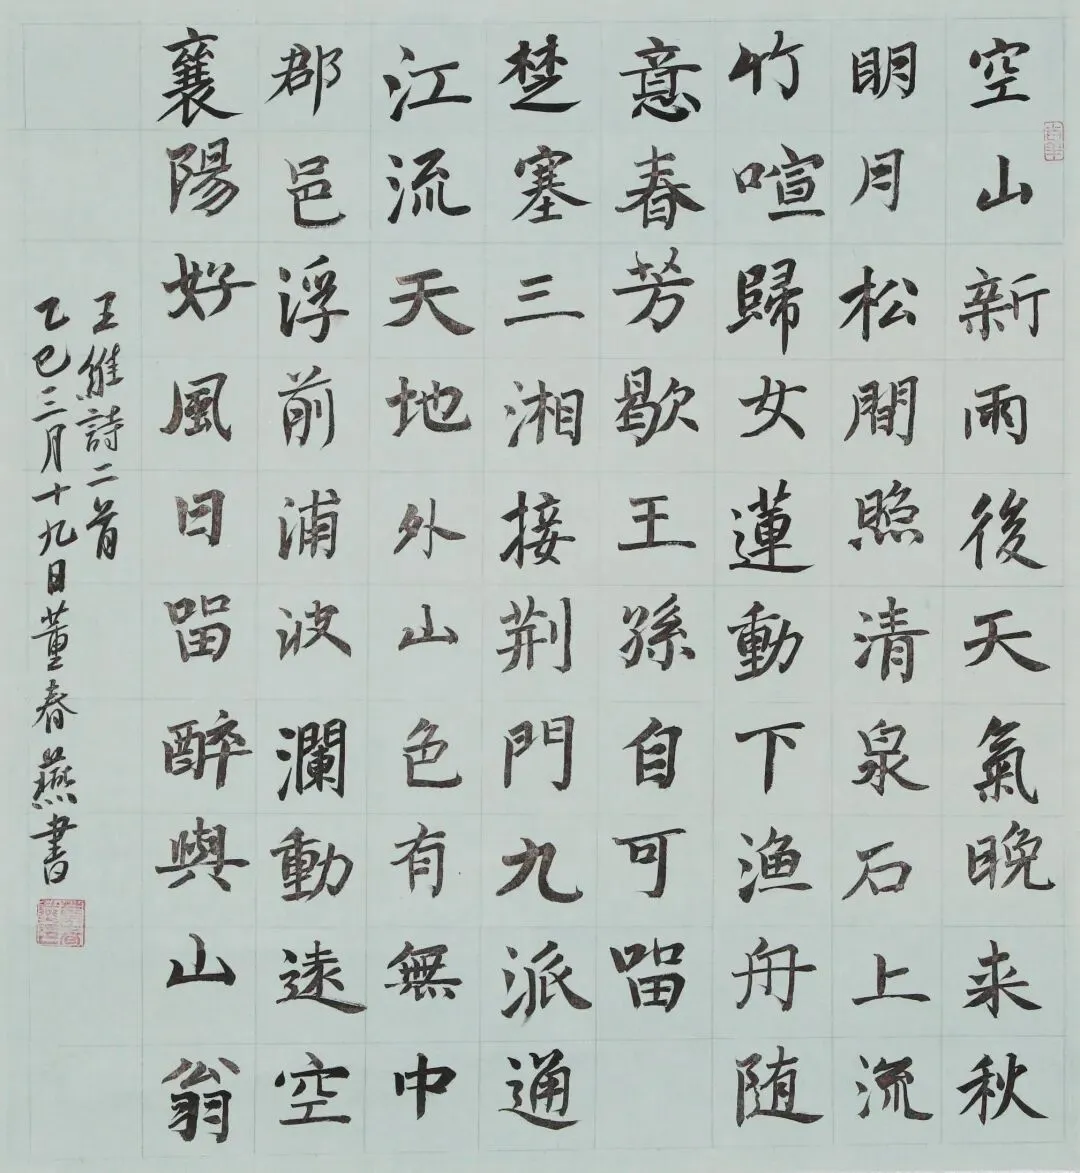 空山新雨後天氣晚来秋
明月松間照清泉石上流
竹喧歸女蓮動下渔舟随
意春芳歇王孫自可留
楚塞三湘接荆門九派通
江流天地外山色有無中
郡邑浮前浦波瀾動遠空
襄陽好風日留醉與山翁
王維詩二首
乙巳三月十九日董春燕書